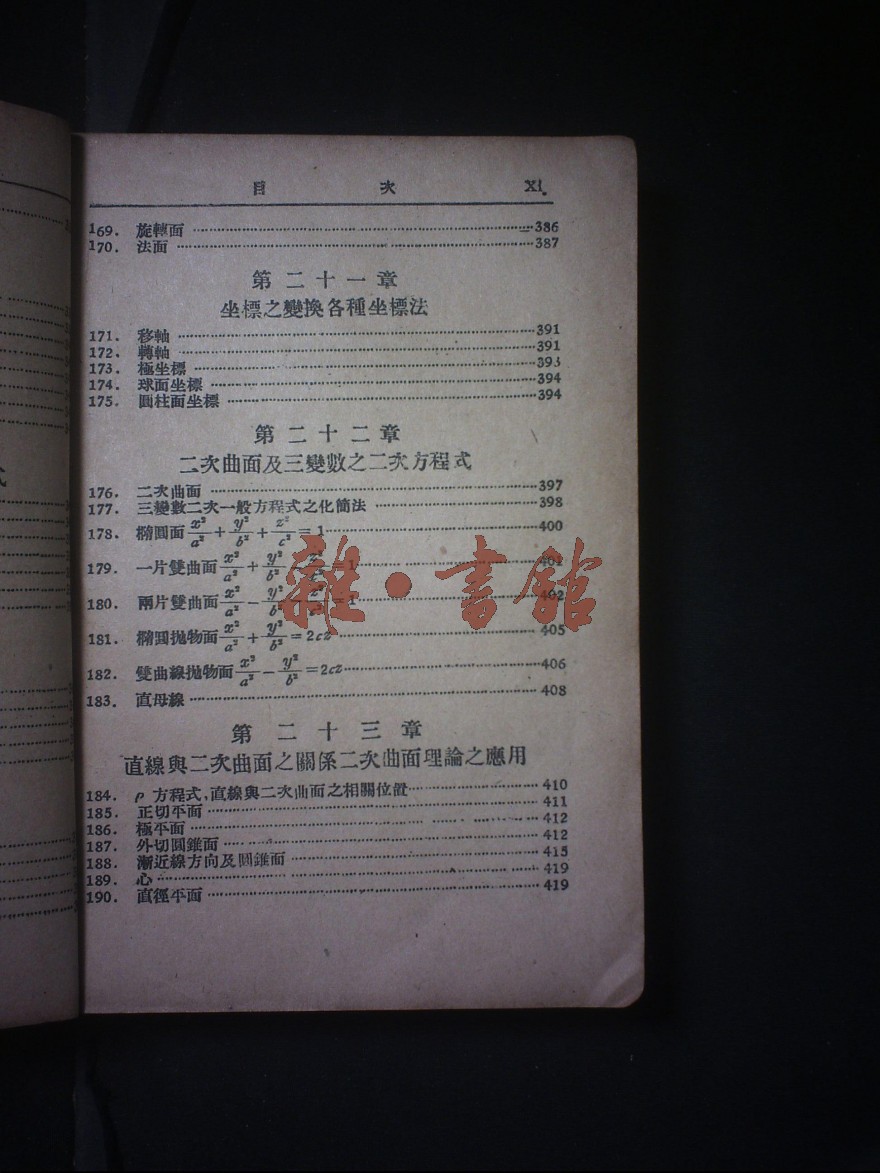 目 次 XI
169. 旋轉面 ……386
170. 法面 ……387
第二十一章
坐標之變換各種坐標法
171. 移軸 ……391
172. 轉軸 ……391
173. 極坐標 ……393
174. 球面坐標 ……394
175. 圓柱面坐標 ……394
第二十二章
二次曲面及三變數之二次方程式
176. 二次曲面 ……397
177. 三變數二次一般方程式之化簡法 ……398
178. 橢圓面 x²/a² + y²/b² + z²/c² = 1 ……400
179. 一片雙曲面 x²/a² + y²/b² - z²/c² = 1 ……401
180. 兩片雙曲面 x²/a² - y²/b² - z²/c² = 1 ……402
181. 橢圓拋物面 x²/a² + y²/b² = 2cz ……405
182. 雙曲線拋物面 x²/a² - y²/b² = 2cz ……406
183. 直母線 ……408
第二十三章
直線與二次曲面之關係二次曲面理論之應用
184. ρ 方程式,直線與二次曲面之相關位置 ……410
185. 正切平面 ……411
186. 極平面 ……412
187. 外切圓錐面 ……412
188. 漸近線方向及圓錐面 ……415
189. 心 ……419
190. 直徑平面 ……419
雜·書館